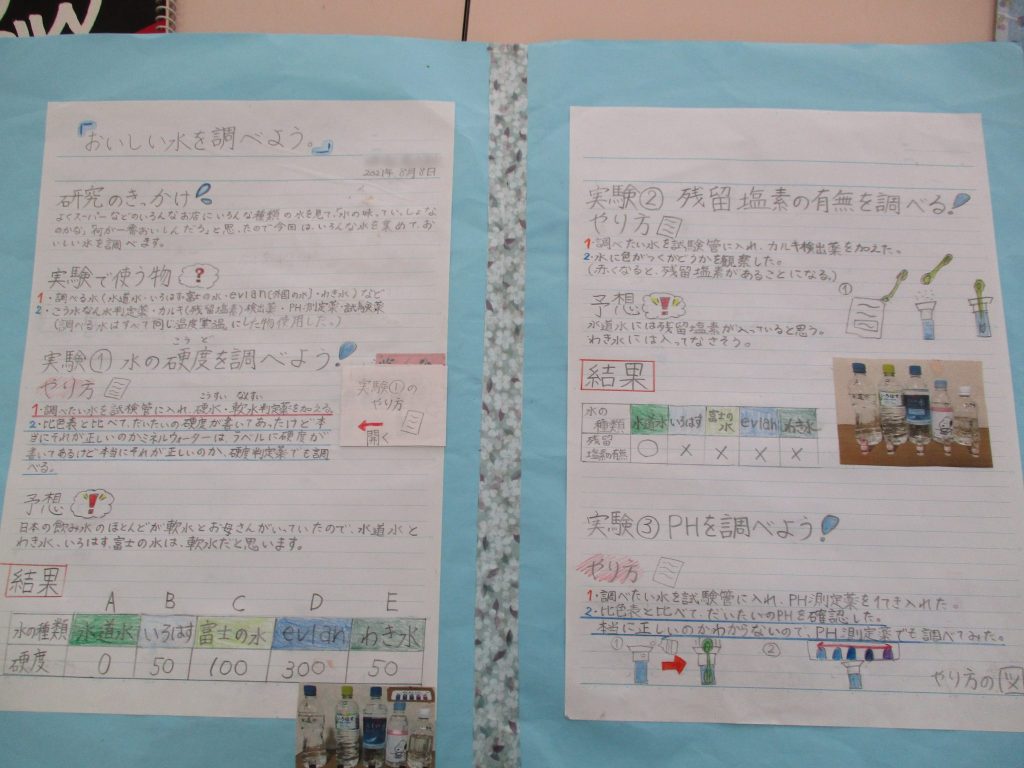 『おいしい水を調べよう。』
2021年 8月 8日
研究のきっかけ
よくスーパーなどのいろんなお店にいろんな種類の水を見て、「水の味っていっしょな
のかな」「何が一番おいしんだろう」と思ったので今回は、いろんな水を集めて、お
いしい水を調べます。
実験で使う物 ?
1・調べる水(水道水・いろはす・富士の水・evian(外国の水)・わき水)など
2・こう水なん水判定薬・カルキ(残留塩素)検出薬・PH測定薬・試験薬
(調べる水はすべて同じ温度室温にした物使用した。)
こうど
実験① 水の硬度を調べよう!
やり方
こうすい なんすい
1・調べたい水を試検管に入れ、硬水・軟水判定薬を加える。
2・比色表と比べて、だいたいの硬度が書いてあったけど本
当にそれが正しいのかミネルウォーターは、ラベルに硬度が
書いてあるけど本当にそれが正しいのか、硬度判定薬でも調
べる。
実験①の
やり方
開く
予想 !
日本の飲み水のほとんどが軟水とお母さんがいっていたので、水道水と
わき水、いろはす、富士の水は、軟水だと思います。
結果
A B C D E
水の種類 水道水 いろはす 富士の水 evian わき水
硬度 0 50 100 300 50
実験② 残留塩素の有無を調べる!
やり方
1・調べたい水を試験管に入れ、カルキ検出薬を加えた。
2・水に色がつくかどうかを観察した。
(赤くなると、残留塩素があることになる。)
①
予想 !
水道水には残留塩素が入っていると思う。
わき水には入ってなさそう。
結果
水の種類 水道水 いろはす 富士の水 evian わき水
残留塩素の有無 ○ × × × ×
実験③ PHを調べよう!
やり方
1・調べたい水を試験管に入れ、PH測定薬を1てき入れた。
2・比色表と比べて、だいたいのPHを確認した。
本当に正しいのかわからないので、PH測定薬でも調べてみた。
① ②
やり方の図